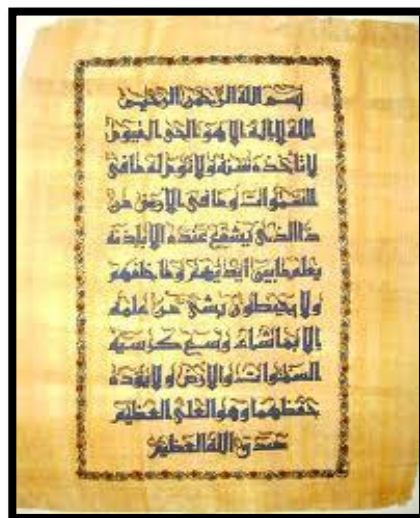 بسم الله الرحمن الرحيم
الله لا إله إلا هو الحي القيوم
لا تأخذه سنة ولا نوم له ما في
السموات وما في الأرض من
ذا الذي يشفع عنده إلا بإذنه
يعلم ما بين أيديهم وما خلفهم
ولا يحيطون بشئ من علمه
إلا بما شاء وسع كرسيه
السموات والأرض ولا يؤده
حفظهما وهو العلي العظيم
صدق الله العظيم